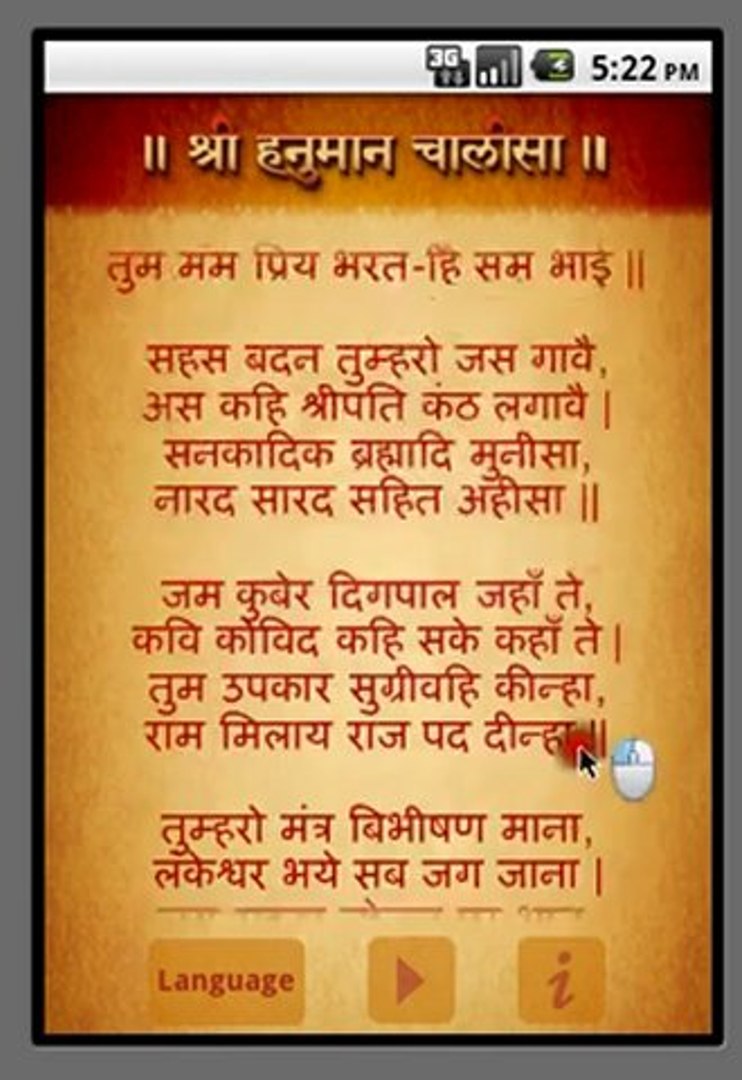 5:22 PM
॥ श्री हनुमान चालीसा ॥
तुम मम प्रिय भरत-हि सम भाई ||
सहस बदन तुम्हरो जस गावै,
अस कहि श्रीपति कंठ लगावै |
सनकादिक ब्रह्मादि मुनीसा,
नारद सारद सहित अहीसा ||
जम कुबेर दिगपाल जहाँ ते,
कवि कोविद कहि सके कहाँ ते |
तुम उपकार सुग्रीवहि कीन्हा,
राम मिलाय राज पद दीन्हा ||
तुम्हरो मंत्र बिभीषण माना,
लंकेश्वर भये सब जग जाना |
Language